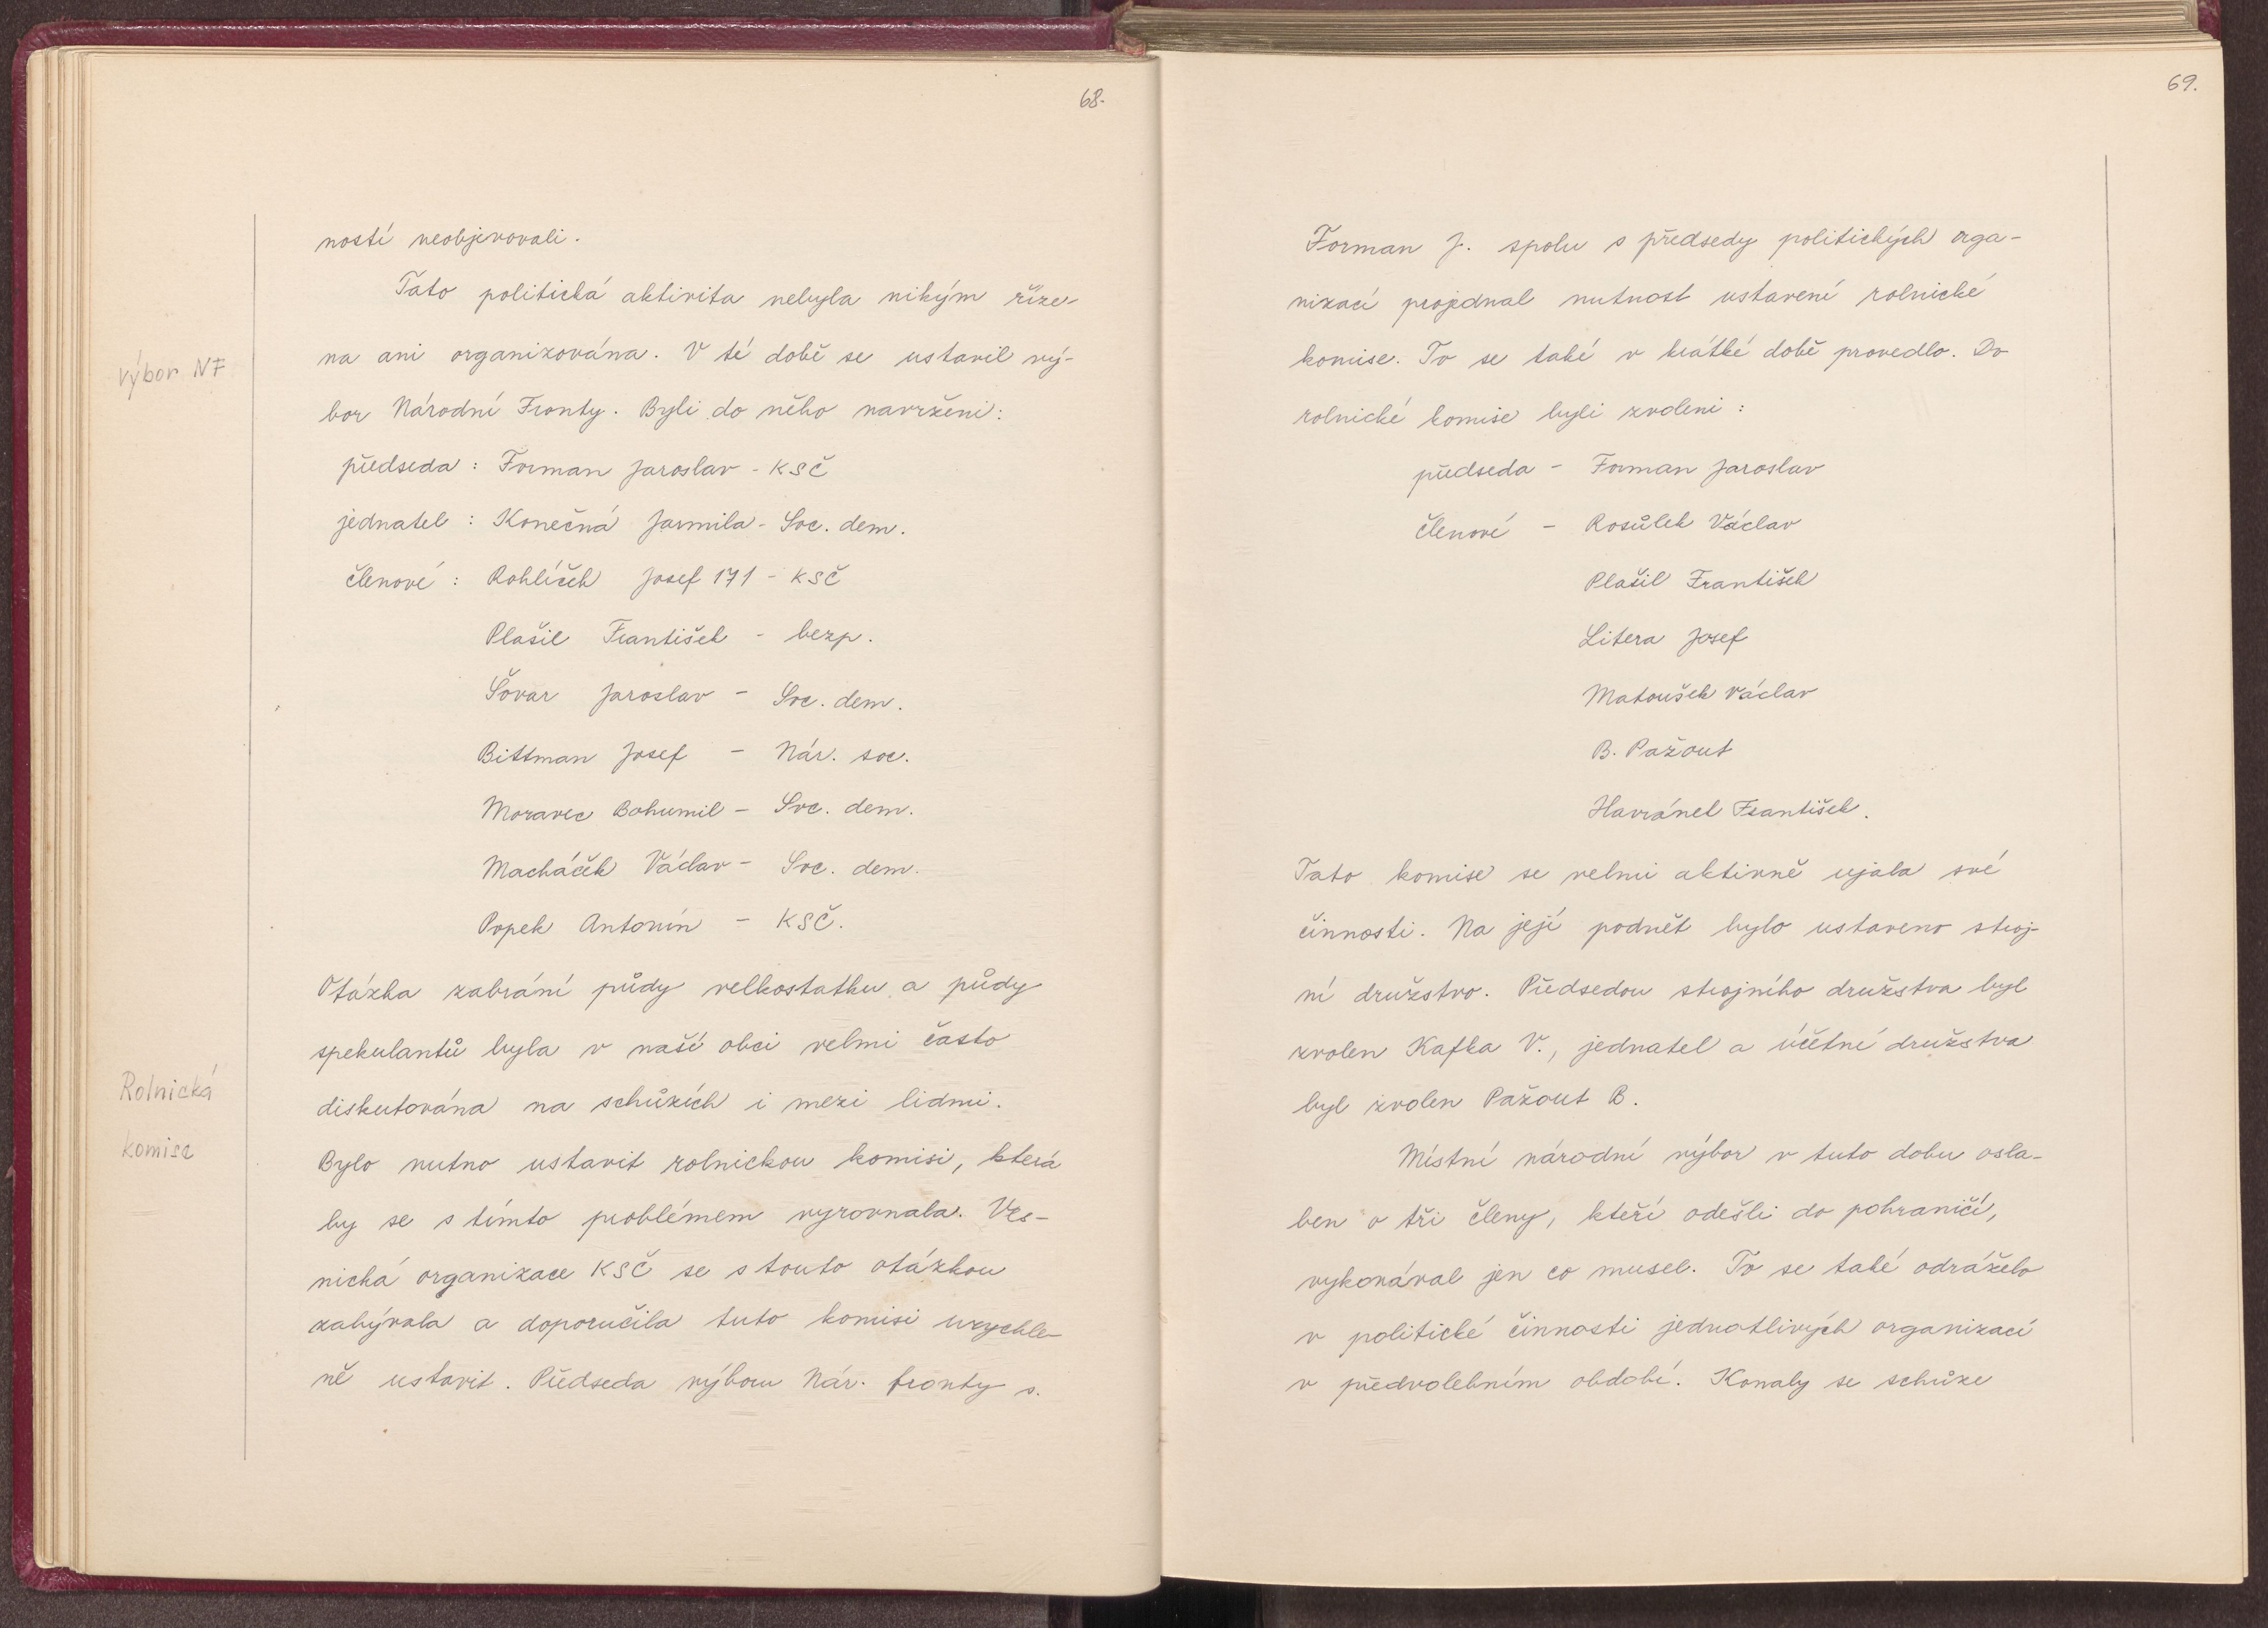 68.
ností neobjevovali.
Tato politická aktivita nebyla nikým říze-
na ani organizována. V té době se ustavil vý-
výbor NF
bor Národní Fronty. Byli do něho navrženi:
předseda : Forman Jaroslav - KSČ
jednatel : Konečná Jarmila - Soc. dem.
členové : Rohlíček Josef 171 - KSČ
Plašil František - bezp.
Šovar Jaroslav - Soc. dem.
Bittman Josef - Nár. soc.
Moravec Bohumil - Soc. dem.
Macháček Václav - Soc. dem.
Popek Antonín - KSČ.
Otázka zabrání půdy velkostatku a půdy
spekulantů byla v naší obci velmi často
Rolnická
komise
diskutována na schůzích i mezi lidmi.
Bylo nutno ustavit rolnickou komisi, která
by se s tímto problémem vyrovnala. Ves-
nická organizace KSČ se s touto otázkou
zabývala a doporučila tuto komisi urychle-
ně ustavit. Předseda výboru Nár. fronty s.
69.
Forman J. spolu s předsedy politických orga-
nizací projednal nutnost ustavení rolnické
komise. To se také v krátké době provedlo. Do
rolnické komise byli zvoleni :
předseda - Forman Jaroslav
členové - Rosůlek Václav
Plašil František
Litera Josef
Matoušek Václav
B. Pažout
Havránek František.
Tato komise se velmi aktivně ujala své
činnosti. Na její podnět bylo ustaveno stroj-
ní družstvo. Předsedou strojního družstva byl
zvolen Kafka V., jednatel a účetní družstva
byl zvolen Pažout B.
Místní národní výbor v tuto dobu osla-
ben o tři členy, kteří odešli do pohraničí,
vykonával jen co musel. To se také odráželo
v politické činnosti jednotlivých organizací
v předvolebním období. Konaly se schůze